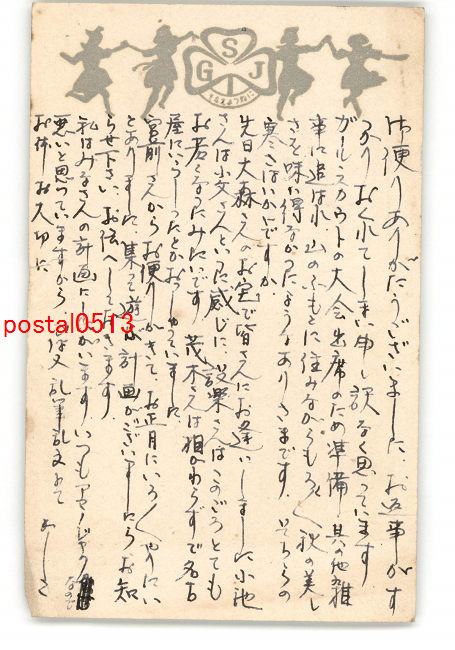 S
G J
そなえよつねに
お便りありがたうございました、お返事がす
つかりおくれてしまい申し訳なく思っています
ガールスカウトの大会出席のため準備し其の他雑
事に追はれ、山のふもとに住みながらもろ〱秋の美し
さを味い得なかったようなありさまです、そちらの
寒さはいかゞですか
先日大森さんのお宅で皆さんにお逢いしました小池
さんは小父さんといった感じに、設楽さんはこのごろとても
お若くなったみたいです、茂木さんは相かわらずで名古
屋にいらしったとかおっしゃっていました
宮前さんからお便りがきて、お正月にいろ〱やりたい
とありました、集って遊ぶ計画がございましたらお知
らせ下さい、お伝へしておきます
私はみなさんの計画にしたがいます、いつもアマノジャク
なので
悪いと思っていますから では又 乱筆乱文にて
お体お大切に
postal0513